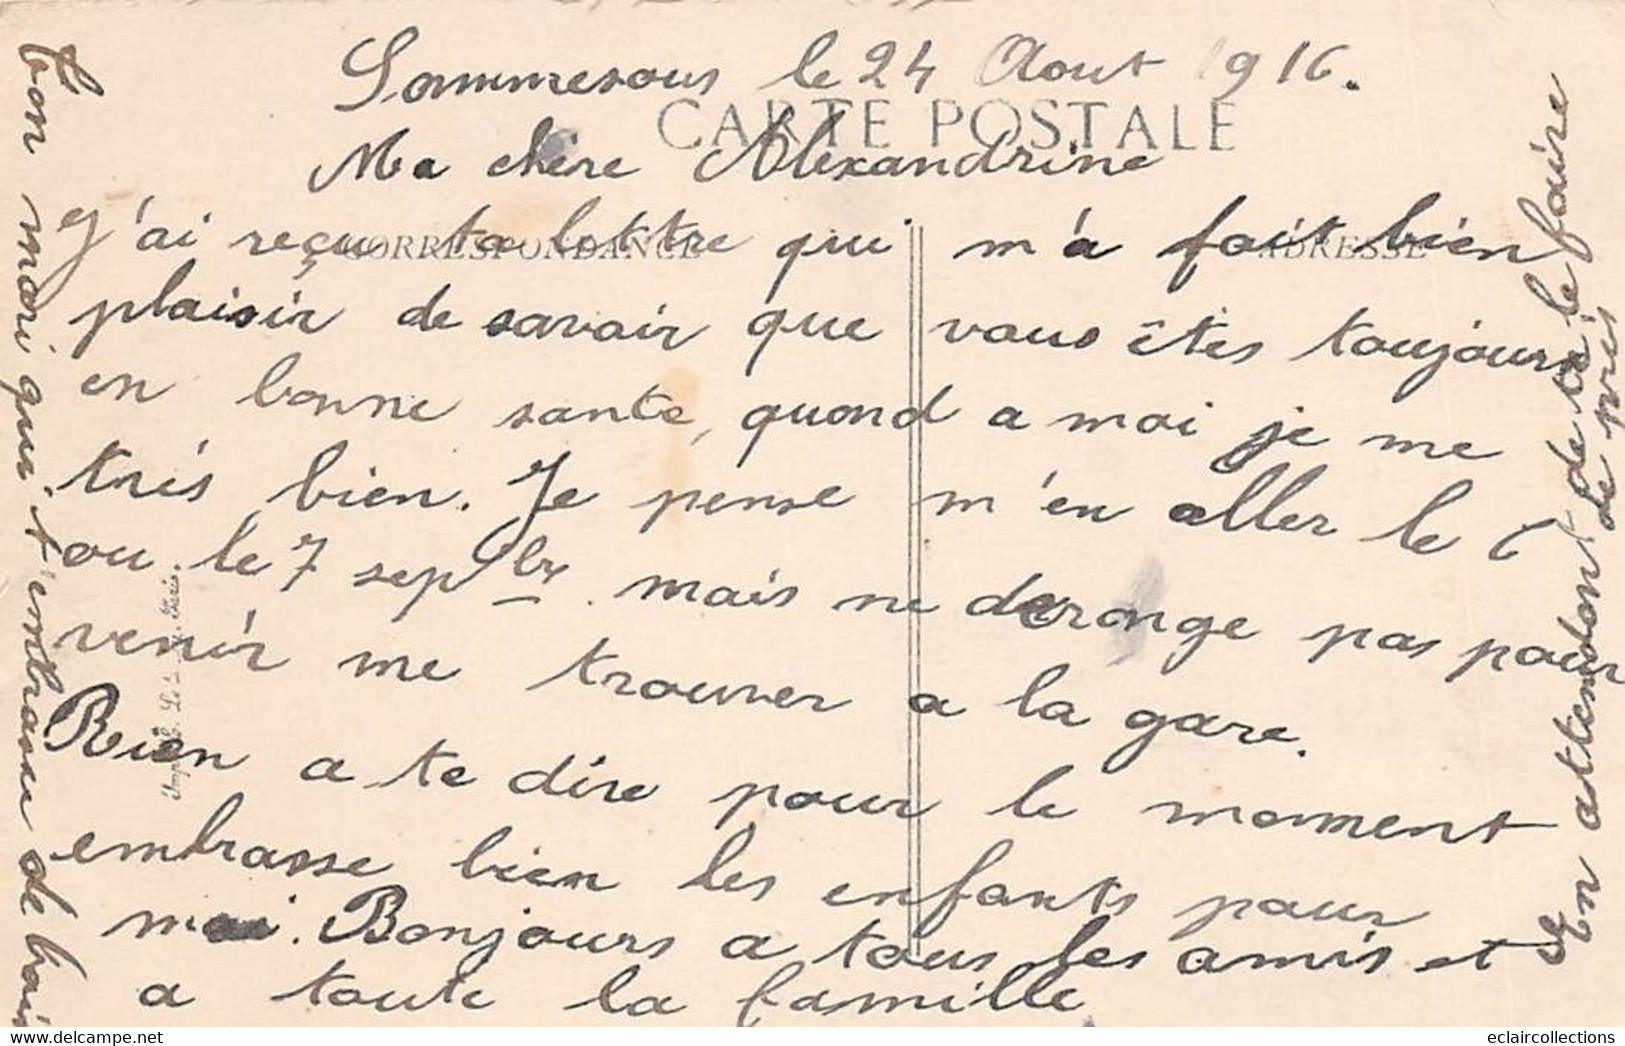 Sommesous le 24 Aout 1916.
CARTE POSTALE
Ma chère Alexandrine
CORRESPONDANCE
ADRESSE
J'ai reçu ta lettre qui m'a fait bien
plaisir de savoir que vous êtes toujours
en bonne sante, quand a moi je me
très bien. Je pense m'en aller le 6
ou le 7 sepbre mais ne derange pas pour
venir me trouver a la gare.
Rien a te dire pour le moment
embrasse bien les enfants pour
moi. Bonjours a tous les amis et
a toute la famille
En attendant de te le faire
de près
Ton mari qui t'embrasse de
eclaircollections